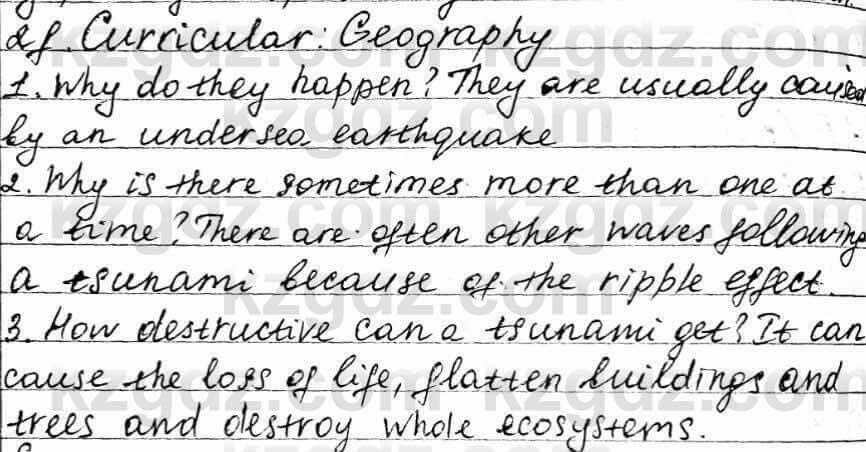 2f. Curricular: Geography
1. Why do they happen? They are usually caused
by an undersea earthquake
2. Why is there sometimes more than one at
a time? There are often other waves following
a tsunami because of the ripple effect.
3. How destructive can a tsunami get? It can
cause the loss of life, flatten buildings and
trees and destroy whole ecosystems.